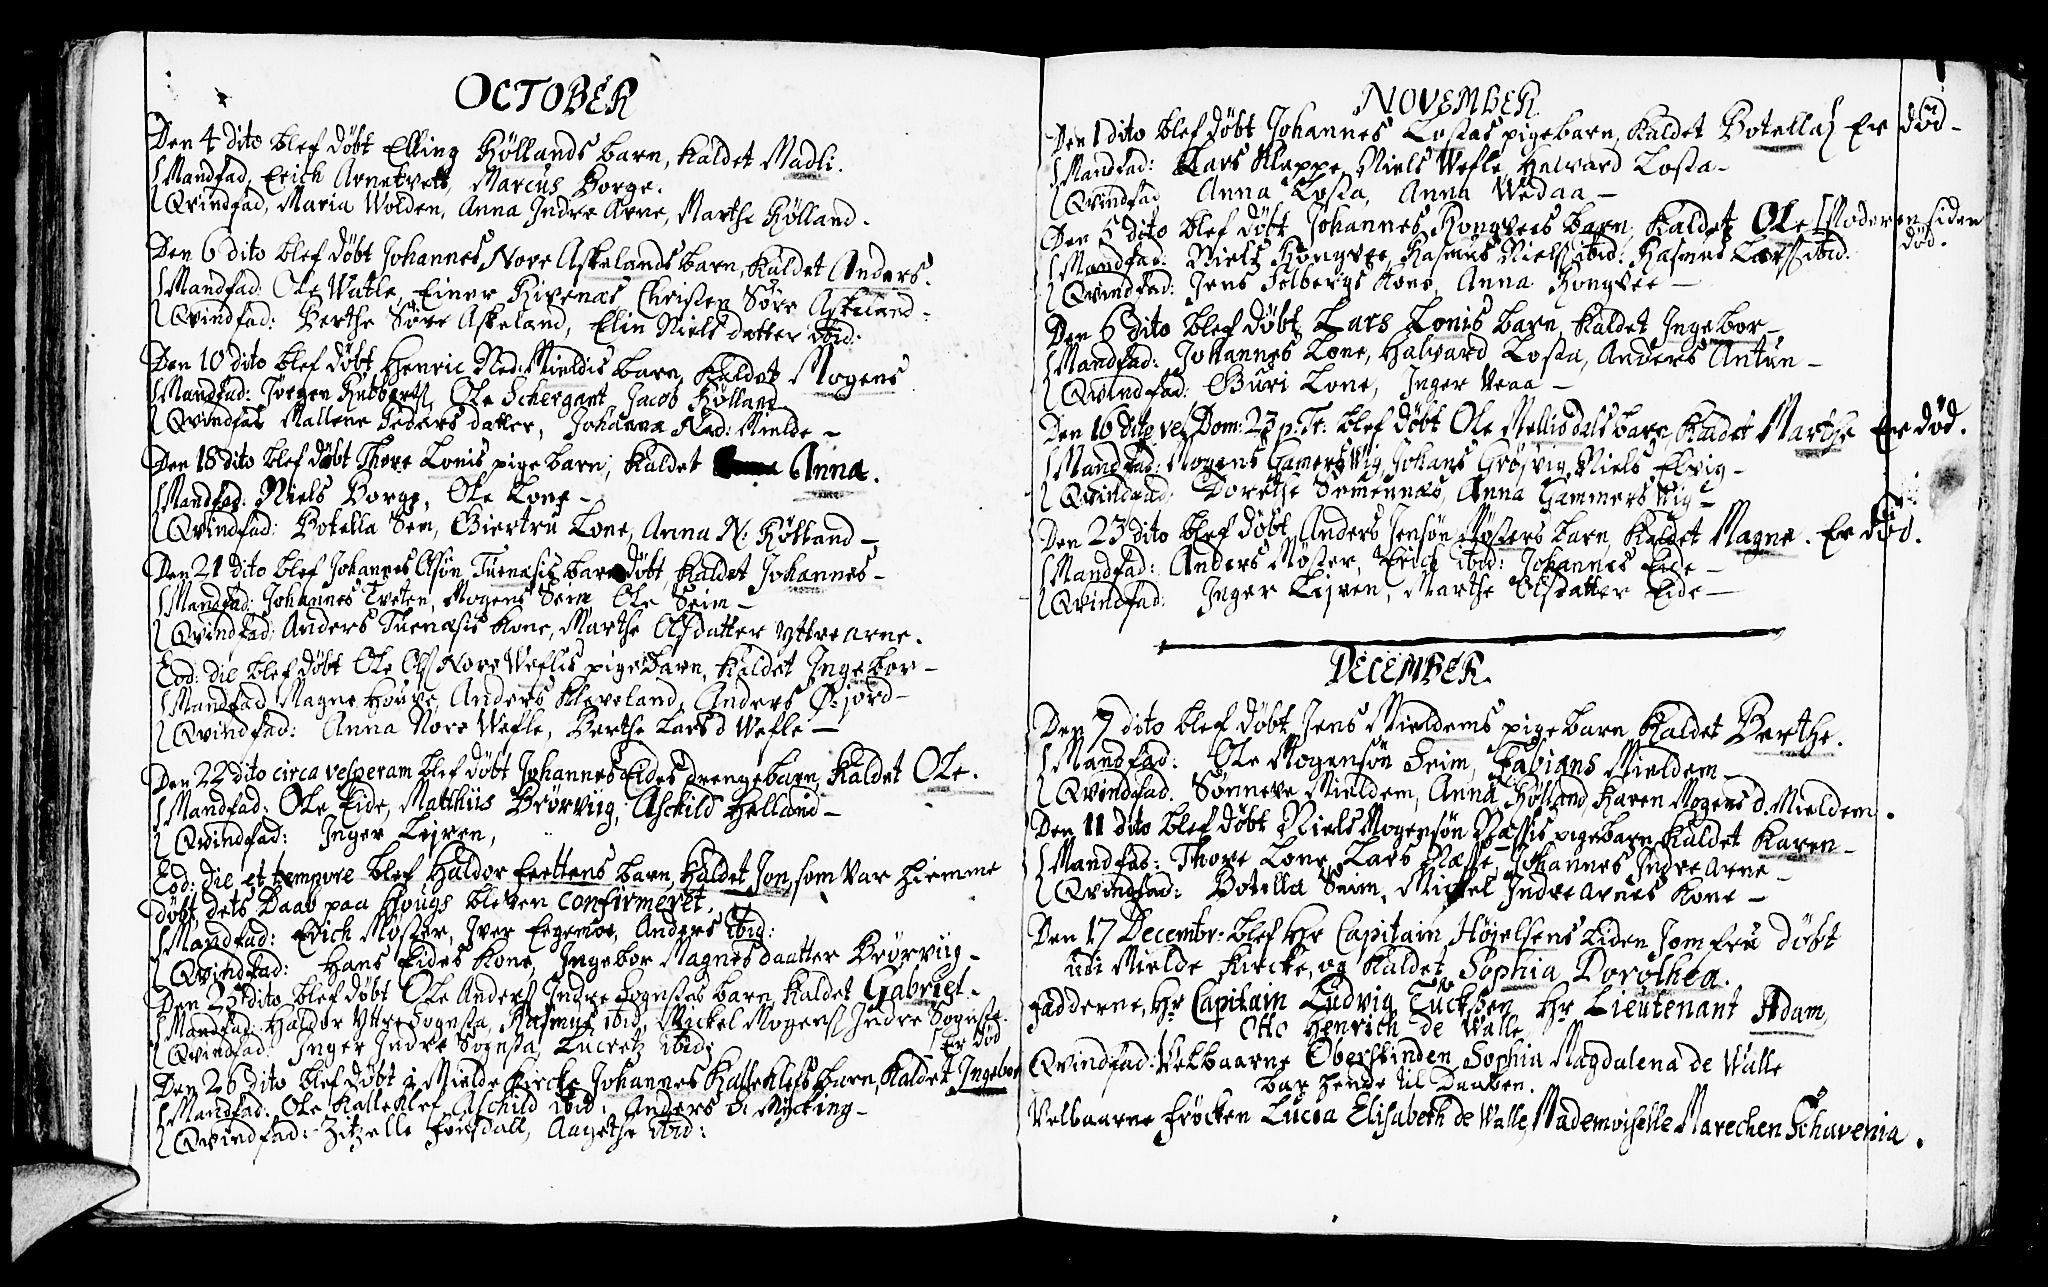 OCTOBER
Den 4 dito blef døbt Elling Höllands barn, kaldet Madli.
Mandfad. Erich Arnetvett, Marcus Borge.
Qvindfad, Maria Wolden, Anna Indre Arne, Marthe Hölland.
Den 6 dito blef døbt Johannes Nore Askelands barn, kaldet Anders.
Mandfad: Ole Watle, Einer Rivenæs, Christen Söre Askeland.
Qvindfad: Berthe Söre Askeland, Elin Niels datter ibid:
Den 10 dito blef døbt Henric Ned: Mieldis barn, kaldet Mogens
Mandfad: Jørgen, Ole Schergant, Jacob Hölland
Qvindfad Mallene Peders datter, Johanna Ned: Mielde –
Den 18 dito blef døbt Thore Lonis pigebarn, kaldet Anna.
Mandfad: Niels Borge, Ole Lone –
Qvindfad: Botella Sem, Giertru Lone, Anna N: Hölland –
Den 21 dito blef Johannes Olsön Tuenæsis barn døbt, kaldet Johannes –
Mandfad: Johannes Tveten, Mogens Seim Ole Seim –
Qvindfad: Anders Tuenæsis Kone, Marthe Olsdatter Yttre Arne.
Eod: die blef døbt Ole Ols Nore Weflis pigebarn, kaldet Ingebor –
Mandfad Magne Houge, Anders Kleveland, Anders Ø: jord –
Qvindfad: Anna Nore Wefle, Berthe Lars d Wefle –
Den 22 dito circa vesperam blef døbt Johannes Eides drengebarn, kaldet Ole.
Mandfad: Ole Eide, Matthiis Brörviig, Aschild Helland –
Qvindfad: Inger Leiren,
Eod: die et tempore blef Haldor frettens barn, kaldet Jon, som var hiemme
døbt, dets Daab paa Hougs bleven confirmeret.
Mandfad: Erich Møster, Iver Eegemoe, Anders ibid:
Qvindfad: Hans Eides Kone, Ingebor Magnes daatter Brörviig –
Den 25 dito blef døbt Ole Anders Indre Sognstes barn, kaldet Gabriel.
Mandfad: Haldor Yttre Sognsta, Rasmus ibid, Mickel Mogens Indre Sognste.
Qvindfad: Inger Indre Sognsta, Lucretz ibid; Er død
Den 26 dito blef døbt i Mielde Kircke Johannes Kalleklefs barn, kaldet Ingebor
Mandfad: Ole Kalleklef, Aschild ibid, Anders D. Mÿcking –
Qvindfad: Zitzelle fonsdall, Aagethe ibid:
NOVEMBER
Den 1 dito blef døbt Johannes Lostas pigebarn, kaldet Botella Er død –
Mandfad: Lars Klappe, Niels Wefle, Halvard Losta –
Qvindfad Anna Losta, Anna Wedaa –
Den 5 dito blef døbt Johannes Rongvees barn, kaldet Ole Moderen siden død.
Mandfad: Niels Rongvee, Rasmus Niels ibid: Rasmus Lars ibid.
Qvindfad: Jens Solbergs Kone, Anna Rongvee –
Den 6 dito blef døbt Lars Lonis barn, kaldet Ingebor –
Mandfad: Johannes Lone, Halvard Losta, Anders Antun –
Qvindfad: Guri Lone, Inger Veaa –
Den 16 dito vel Dom: 23 p. Tr: blef døbt Ole Mellisdals barn, kaldet Marthe Er død.
Mandfad: Mogens Gamersvig, Johans Grösvig, Niels Elvig –
Qvindfad: Dorethe Semennæs, Anna Gammersvig –
Den 23 dito blef døbt Anders Jensön Møsters barn, kaldet Magne. Er død.
Mandfad: Anders Møster, Erich ibid: Johannes Eide –
Qvindfad: Inger Leiren, Marthe Olsdatter Eide –
DECEMBER.
Den 7 dito blef døbt Jens Mieldems pigebarn, kaldet Berthe.
Mandfad: Ole Mogensön Seim, Fabians Mieldem –
Qvindfad. Sönneve Mieldem, Anna Hölland, Karen Mogens d. Mieldem.
Den 11 dito blef døbt Niels Mogensön Næssis pigebarn, kaldet Karen –
Mandfad: Thore Lone, Lars Næsse, Johannes Indre Arne –
Qvindfad: Botella Seim, Mickel Indre Arnes Kone –
Den 17 Decembr: blef Hr Capitain Höjelsens liden Jomfru døbt
udi Mielde Kircke, og kaldet Sophia Dorothea.
Fadderne, Hr Capitain Ludvig Tückssen Hr Lieutenant Adam
Otto Henrich de Walle,
Qvindfad: Velbaarne Oberstinden Sophia Magdalena de Walle
bar hende til Daaben.
Velbaarne Fröcken Lucia Elisabeth de Walle, Mademoiselle Marechen Schavenia.